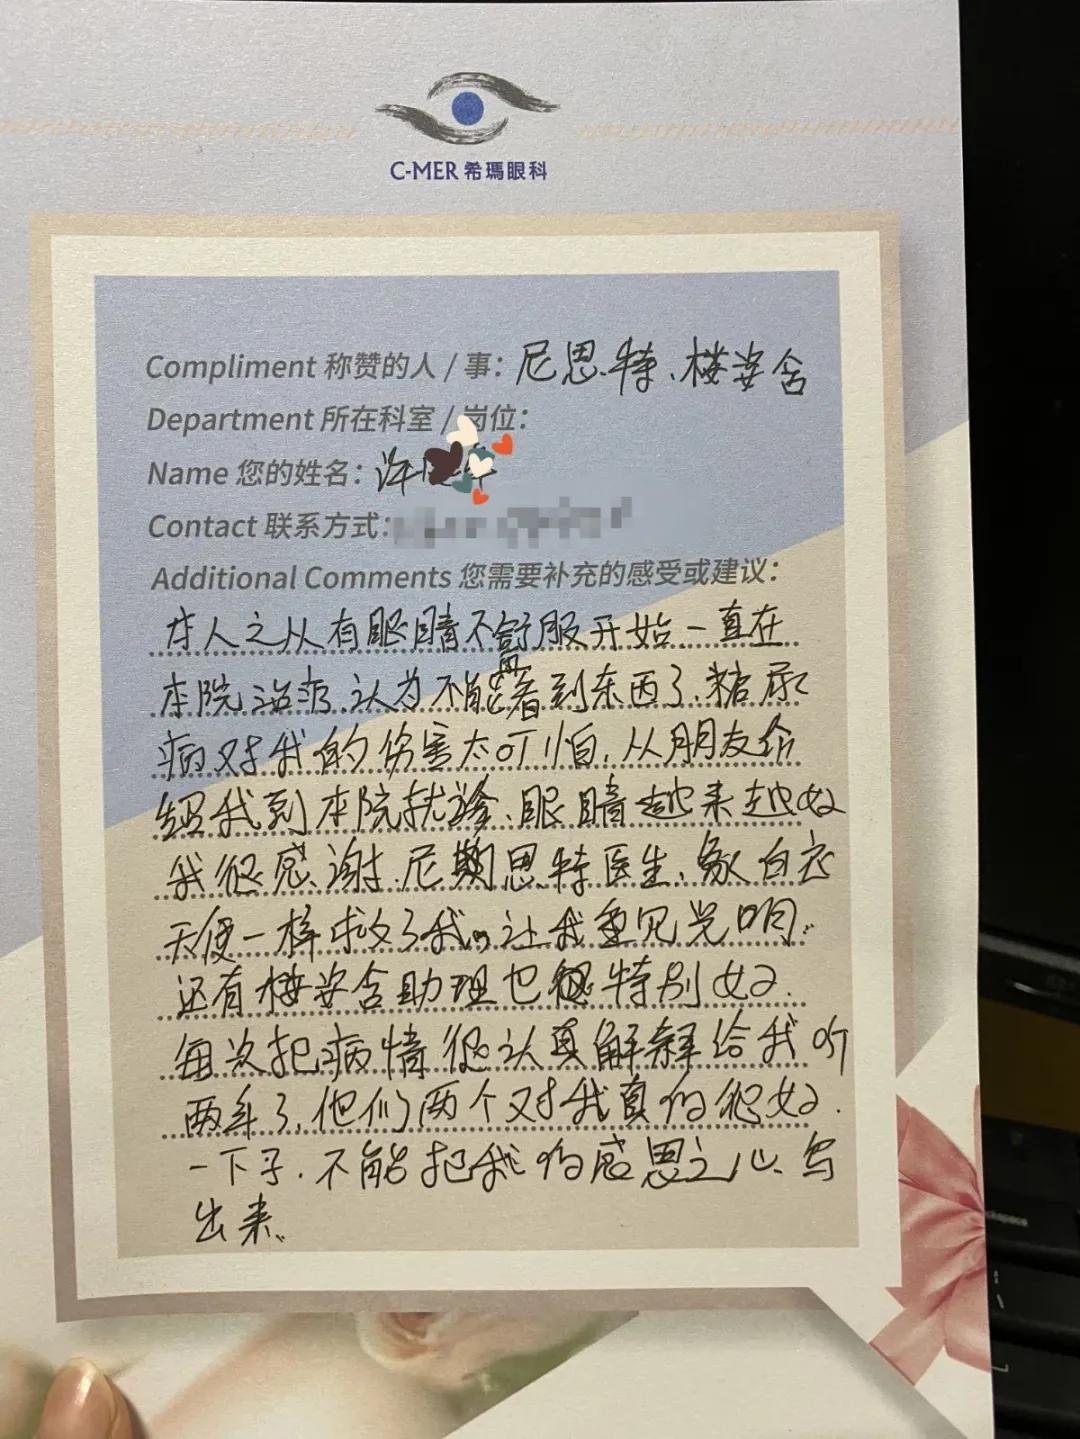 C-MER 希瑪眼科
Compliment 称赞的人 / 事：尼恩特、楼姿含
Department 所在科室 / 岗位：
Name 您的姓名：许
Contact 联系方式：
Additional Comments 您需要补充的感受或建议：
本人之从有眼睛不舒服开始一直在
本院治疗.认为不能再看到东西了.糖尿
病对我的伤害太可怕.从朋友介
绍我到本院就诊、眼睛越来越好
我很感谢.尼恩特医生、象白衣
天使一样救了我。让我重见光明.
还有楼姿含助理也很特别好.
每次把病情很认真解释给我听
两年了.他们两个对我真的很好.
一下子.不能把我的感恩之心、写
出来.